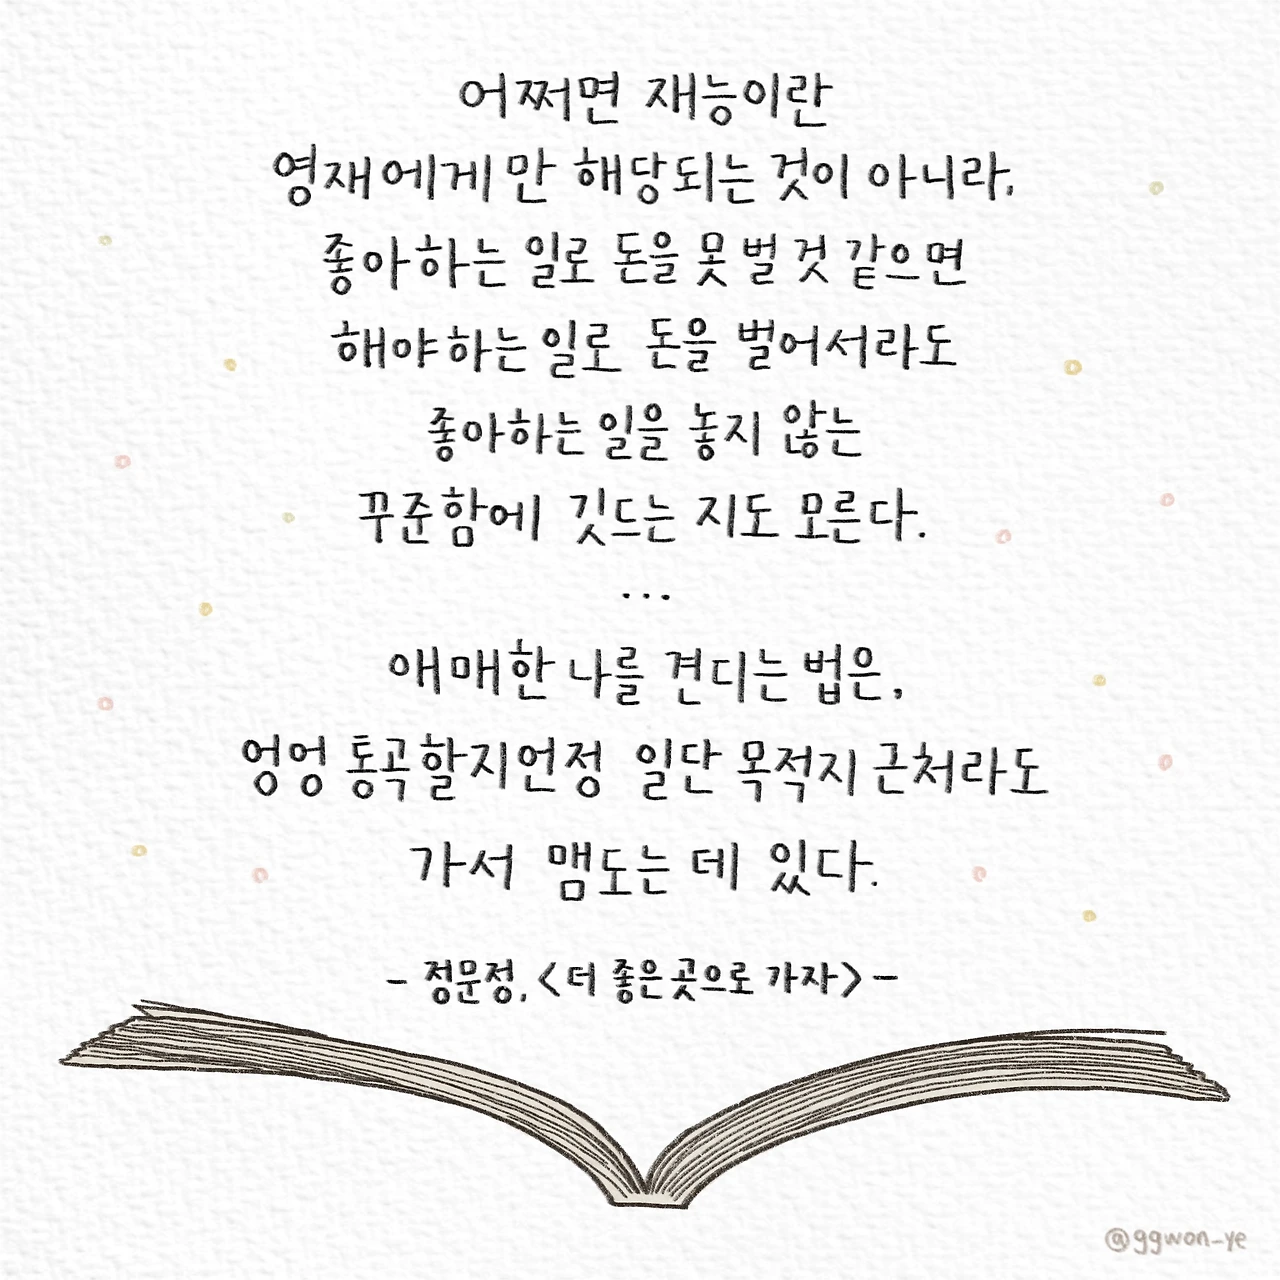 어쩌면 재능이란
영재에게만 해당되는 것이 아니라,
좋아하는 일로 돈을 못 벌 것 같으면
해야하는 일로 돈을 벌어서라도
좋아하는 일을 놓지 않는
꾸준함에 깃드는 지도 모른다.
...
애매한 나를 견디는 법은,
엉엉 통곡할지언정 일단 목적지 근처라도
가서 맴도는 데 있다.
- 정문정, <더 좋은 곳으로 가자> -
@ggwon_ye